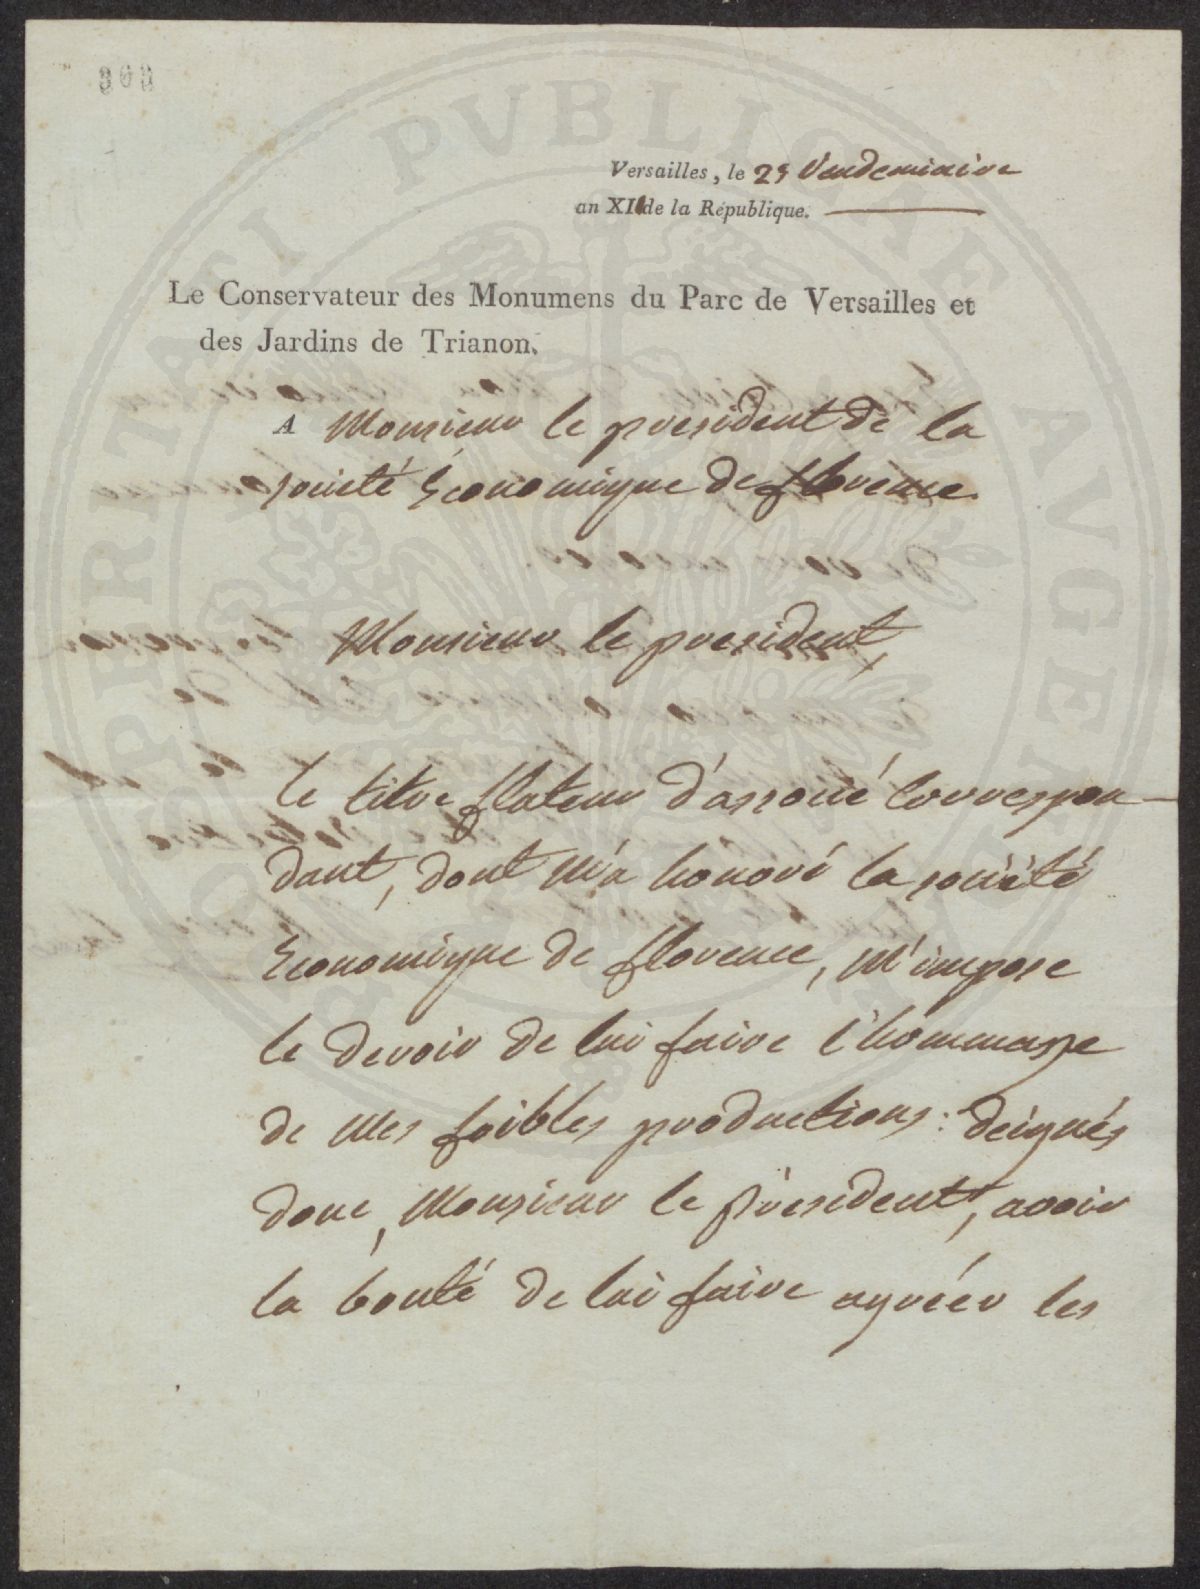 303
Versailles, le 25 Vendemiaire
an XII de la République.
Le Conservateur des Monumens du Parc de Versailles et
des Jardins de Trianon.
A Monsieur le president de la
société Economique de florence.
Monsieur le president,
le titre flateur d'associé correspon-
dant, dont m'a honoré la société
Economique de florence, m'impose
le devoir de lui faire l'hommage
de mes foibles productions : deignés
donc, Monsieur le president, avoir
la bonté de lui faire agréér les
PROSPERITATI PUBLICAE AUGENDAE